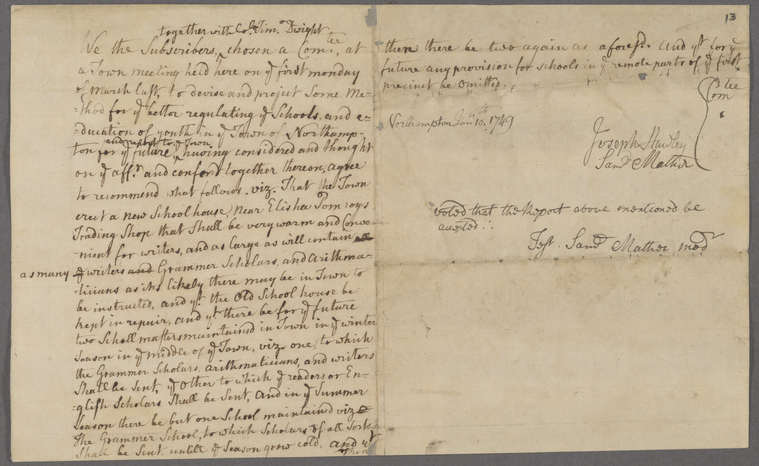 together with Col.o Tim.o Dwight
We the Subscribers, chosen a Com.tee, at
a Town meeting held here on ye first monday
of March last, to devise and project Some Me-
-thod for ye better regulating ye Schools, and e-
ducation of youth in ye Town of Northamp-
and report to ye Town
ton for ye future, having considered and thought
on ye affr. and conferd together thereon, agree
to recommend what follows. viz. That the Town
erect a new Schoolhouse, Near Elisha Pomroys
Trading Shop that Shall be very warm and Conve-
nient for writers, and as large as will contain
as many ye writers and Grammer Scholars, and Arithma-
-ticians as its likely there may be in Town to
be instructed, and yt the Old School house be
kept in repair, and yt there be for ye future
two School masters maintained in Town in ye winter
Season in ye middle of ye Town, viz. one, to which
the Grammer Scholars, arithmaticians, and writers
Shall be Sent, ye Other to which ye readers or En-
glish Scholars Shall be Sent, and in ye Summer
Season there be but one School maintained viz
The Grammer School, to which Scholars of all Sorts
Shall be Sent, untill ye Season grow cold, and yt
then
13
then there be two again as aforesd. and yt for ye
future any provision for schools in ye remote parts of ye first
precinct be Omitted
Northampton Janu 10.th 1749
Joseph Hawley
Saml Mather
Com.tee
voted that the Report above mentioned be
accepted
Test Saml Mather modr